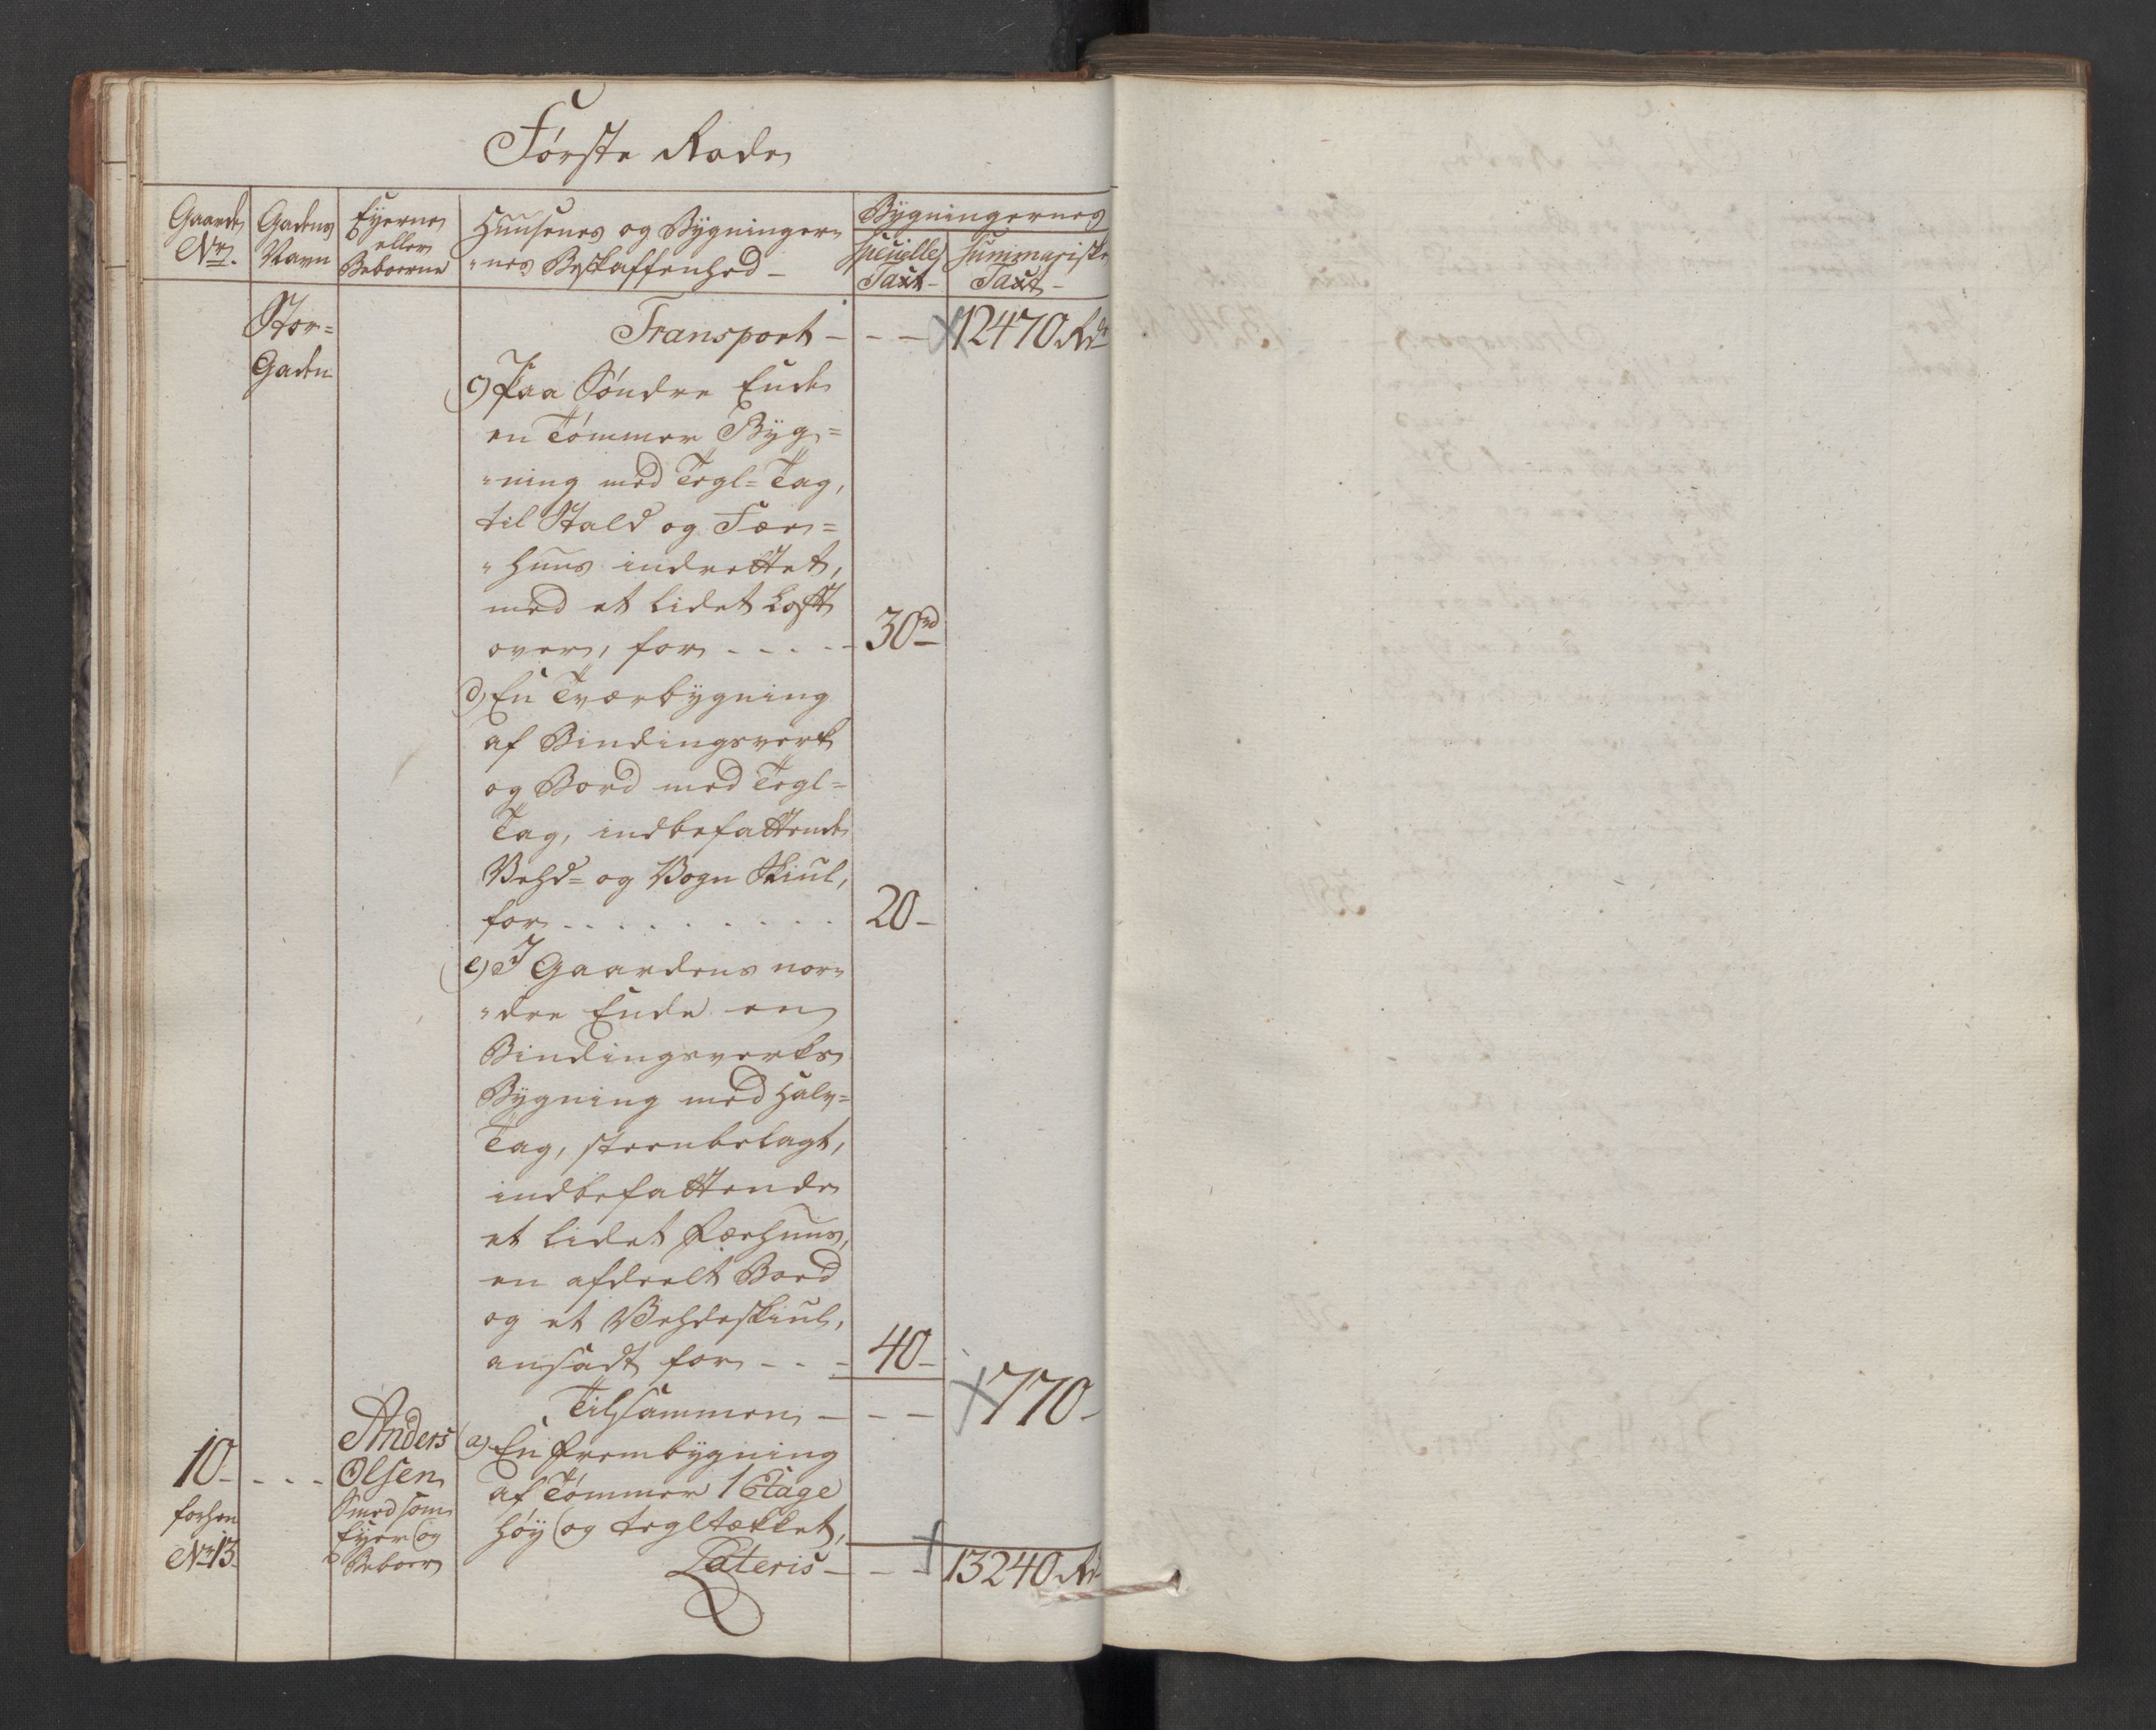 Første Rode
Gaarde Nr. | Gadens Navn | Eyerne eller Beboerne | Huusenes og Bygninger= =nes Beskaffenhed – | Bygningernes
specielle Taxt – | summariske Taxt –
Stor=
Gaden
Transport – – – 12470 Rdr
c) Paa Søndre Ende
en Tømmer Byg=
=ning med Tegl=Tag,
til Stald og Fæe=
=huus indrettet,
med et lidet Loft
over, for - - - - - 30 rd
d) En Tværbygning
af Bindingsverk
og Bord med Tegl=
Tag, indbefattende
Vehd= og Vogn Skiul,
for - - - - - - - - 20 –
e) I Gaardens nor=
=dre Ende en
Bindingsverks
Bygning med Halv=
Tag, steenbelagt,
indbefattende
et lidet Fæehuus,
en afdeelt Boed
og et Vehdeskiul,
ansadt for - - - 40 –
Tilsammen – – – 770 –
10 – - - - Anders Olsen
forhen Nr 13
Smed som Eyer og Beboer
a) En Frembygning
af Tømmer 1 Etage
høy og tegltækket,
Lateris – – – 13240 Rd